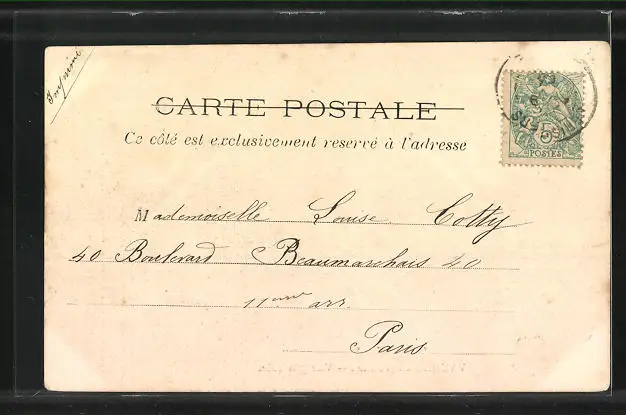 Imprimé
CARTE POSTALE
Ce côté est exclusivement reservé à l'adresse
5
POSTES
Mademoiselle Louise Cotty
40 Boulevard Beaumarchais 40
11eme arr.
Paris